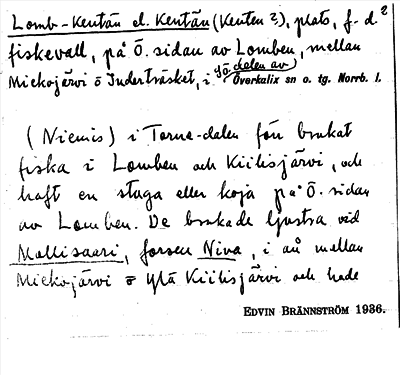 Lomb-Kentän el. Kentän (Kenten 2), plats, f. d.²
fiskevall, på Ö. sidan av Lomben, mellan
Mickojärvi o Inderträsket, i Sö delen av Överkalix sn o. tg. Norrb. l.
(Niemis) i Torne-dalen förr brukat
fiska i Lomben och Kiilisjärvi, och
haft en staga eller koja på Ö. sidan
av Lomben. De brukade ljustra vid
Mollisaari, forsen Niva, i ån mellan
Mickojärvi o Ylä Kiilisjärvi och hade
EDVIN BRÄNNSTRÖM 1936.